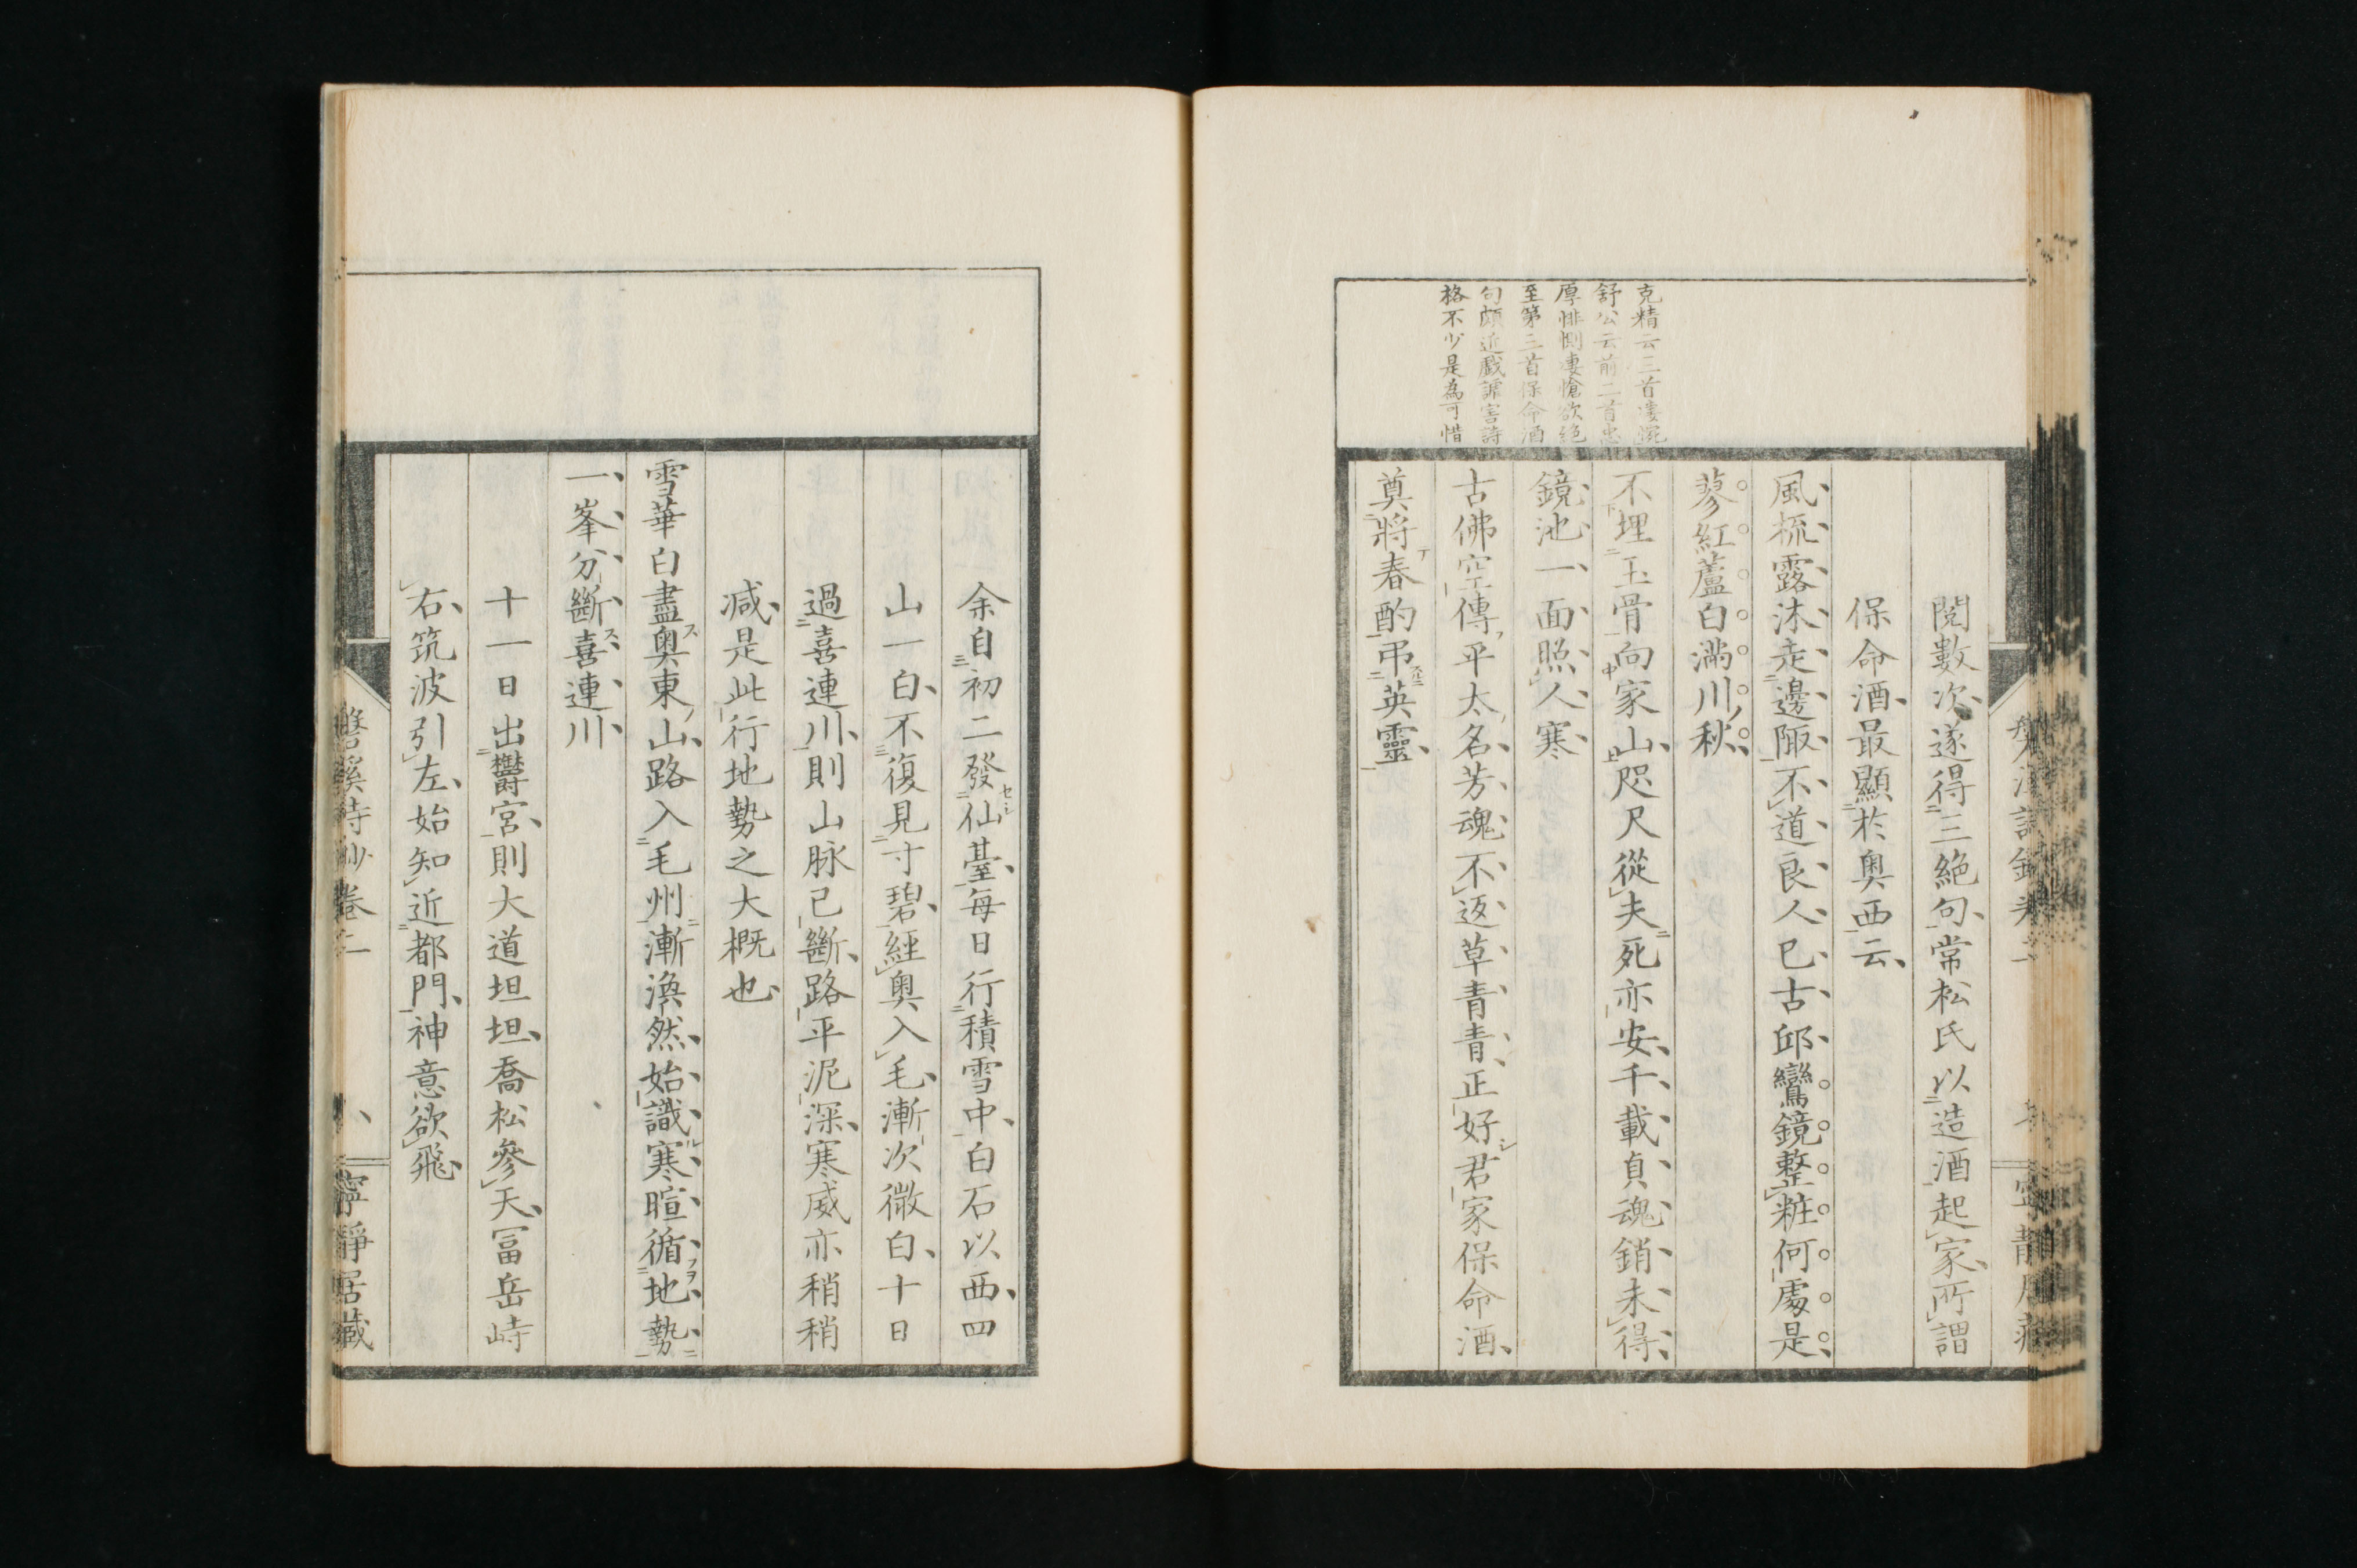 閱數次遂得三絕句常松氏以造酒起家所謂
保命酒最顯於奥西云
風梳露沐走邊陬不道良人已古邱鸞鏡整粧何處是
蓼紅蘆白滿川秋
不埋玉骨向家山咫尺從夫死亦安千載貞魂銷未得
鏡池一面照人寒
古佛空傳平太名芳魂不返草青青正好君家保命酒
奠將春酌弔英靈
克精云三首凄惋
舒公云前二首忠
厚悱惻凄愴欲絕
至第三首保命酒
句頗近戲謔害詩
格不少是為可惜
余自初二發仙臺每日行積雪中白石以西四
山一白不復見寸碧經奥入毛漸次微白十日
過喜連川則山脉已斷路平泥深寒威亦稍稍
减是此行地勢之大概也
雪華白盡奥東山路入毛州漸渙然始識寒暄循地勢
一峯分斷喜連川
十一日出欝宮則大道坦坦喬松參天冨岳峙
右筑波引左始知近都門神意欲飛
磐溪詩鈔卷二
寧靜居藏